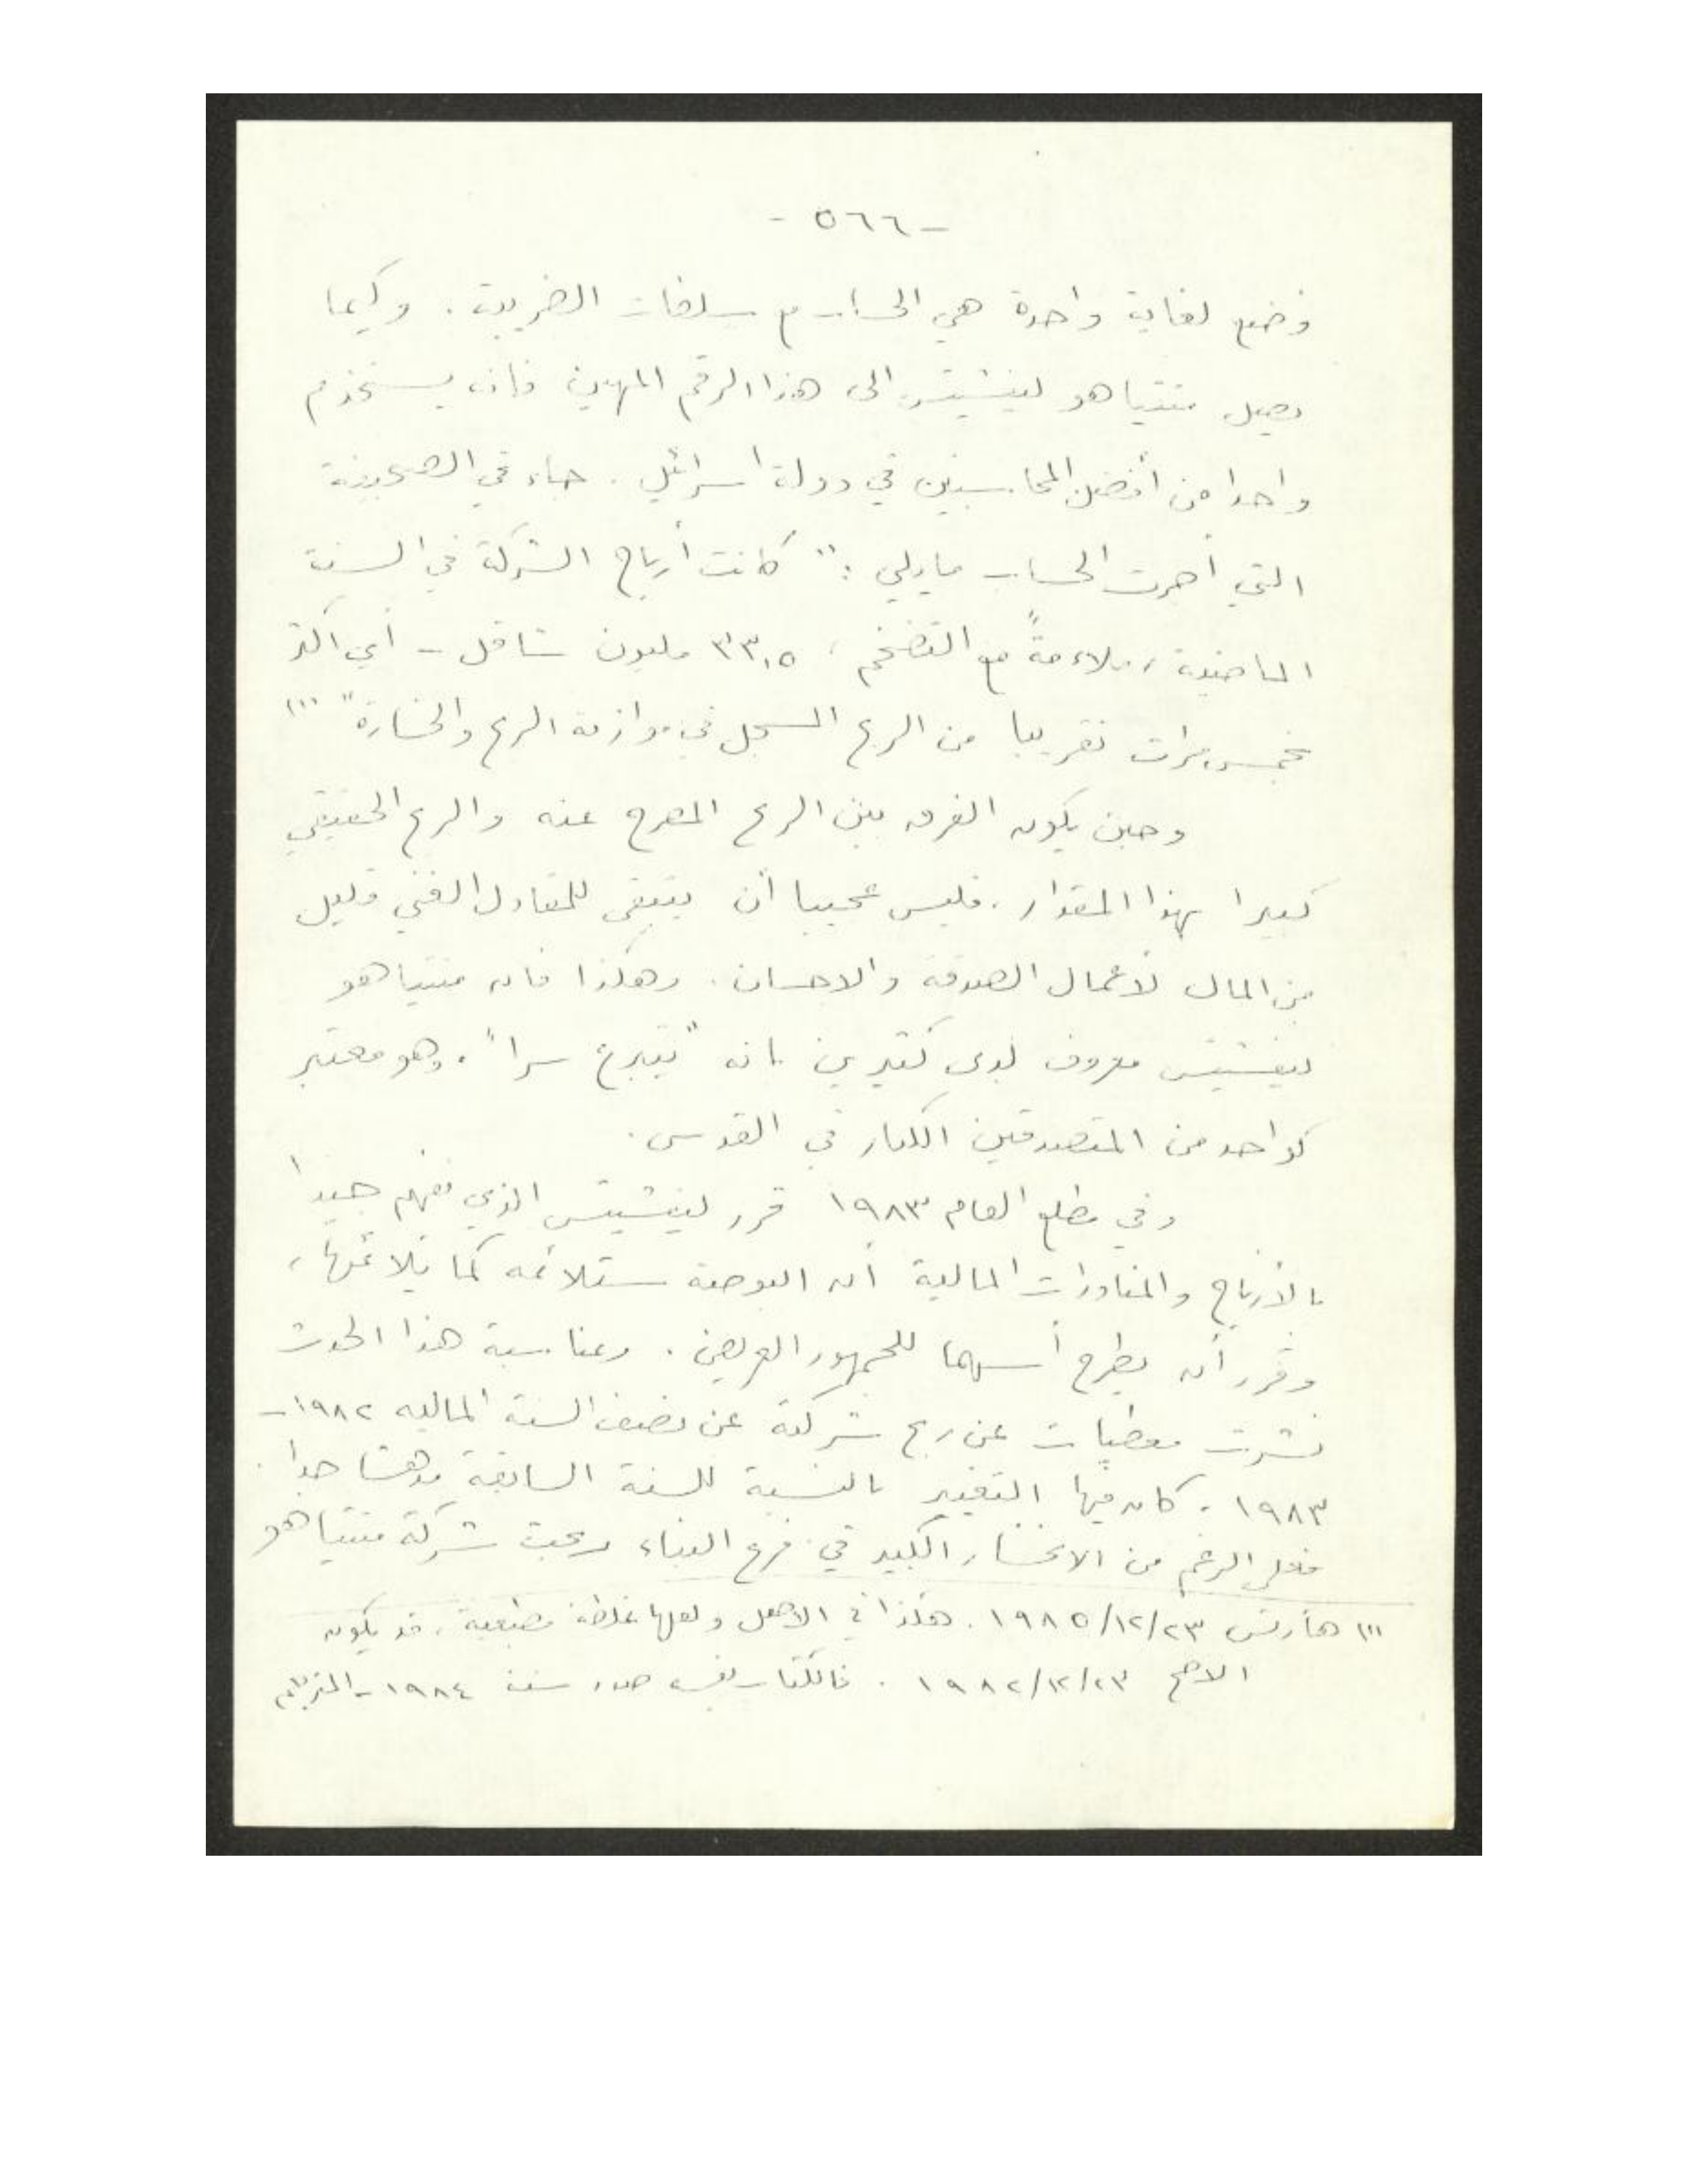 - ٥٦٦ -
وضع لغاية واحدة هي الحساب مع سلطات الضريبة. وكيما
يصل متتياهو ليفشيتس الى هذا الرقم المهين فانه يستخدم
واحدا من أفضل المحاسبين في دولة اسرائيل. جاء في الصحيفة
التي أجرت الحساب مايلي: " كانت أرباح الشركة في السنة
الماضية، ملاءمةً مع التضخم، ٣٣,٥ مليون شاقل - أي اكثر
بخمس مرات تقريبا من الربح المسجل في موازنة الربح والخسارة" (١)
وحين يكون الفرق بين الربح المصرح عنه والربح الحقيقي
كبيرا بهذا المقدار، فليس عجيبا أن يتبقى للمقاول الغني قليل
من المال لأعمال الصدقة والاحسان. وهكذا فان متتياهو
ليفشيتس معروف لدى كثيرين بانه "يتبرع سرا"، وهو معتبر
كواحد من المتصدقين الكبار في القدس.
وفي مطلع العام ١٩٨٣ قرر ليفشيتس الذي يفهم جيدا
بالأرباح والمناورات المالية أن البورصة ستلائمه كما يلائمها،
وقرر أن يطرح أسهما للجمهور العريض. وبمناسبة هذا الحدث
نشرت معطيات عن ربح شركته عن نصف السنة المالية ١٩٨٢-
١٩٨٣. كان فيها التغيير بالنسبة للسنة السابقة مدهشا جدا.
فعلى الرغم من الانحسار الكبير في فرع البناء ربحت شركة متتياهو
(١) هآرتس ٢٣/١٢/١٩٨٥. هكذا في الاصل ولعلها غلطة مطبعية، قد يكون
الاصح ٢٣/١٢/١٩٨٢. فالكتاب نفسه صدر سنة ١٩٨٤ -المترجم